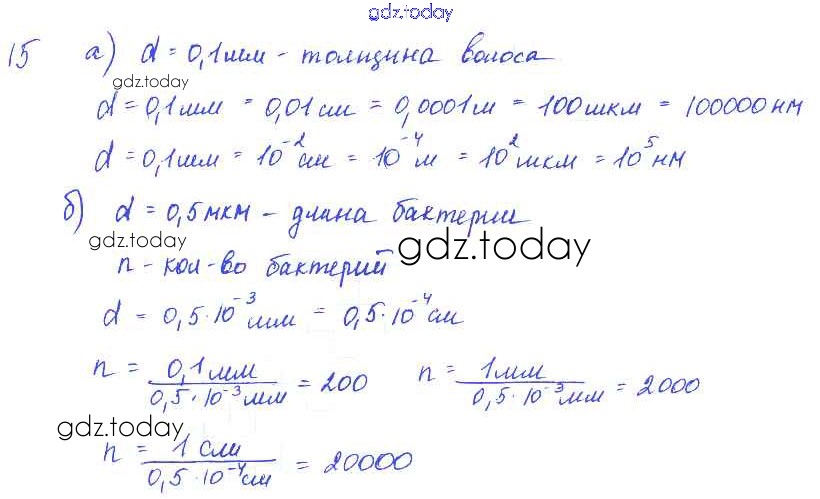 gdz.today
15 а) d = 0,1 мм - толщина волоса
gdz.today
d = 0,1 мм = 0,01 см = 0,0001 м = 100 мкм = 100000 нм
d = 0,1 мм = 10⁻² см = 10⁻⁴ м = 10² мкм = 10⁵ нм
б) d = 0,5 мкм - длина бактерии
gdz.today
gdz.today
n - кол-во бактерий
d = 0,5·10⁻³ мм = 0,5·10⁻⁴ см
n = 0,1 мм / 0,5·10⁻³ мм = 200 n = 1 мм / 0,5·10⁻³ мм = 2000
gdz.today
n = 1 см / 0,5·10⁻⁴ см = 20000